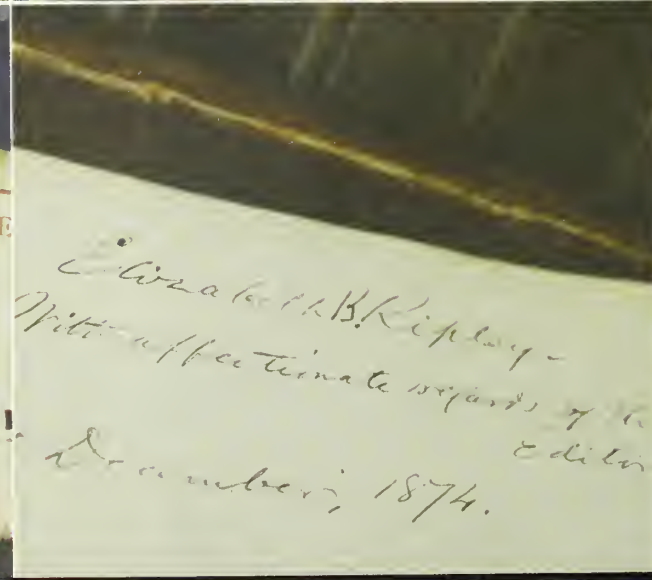 Elizabeth B. Ripley -
With affectionate regards of the
Editor
December, 1874.